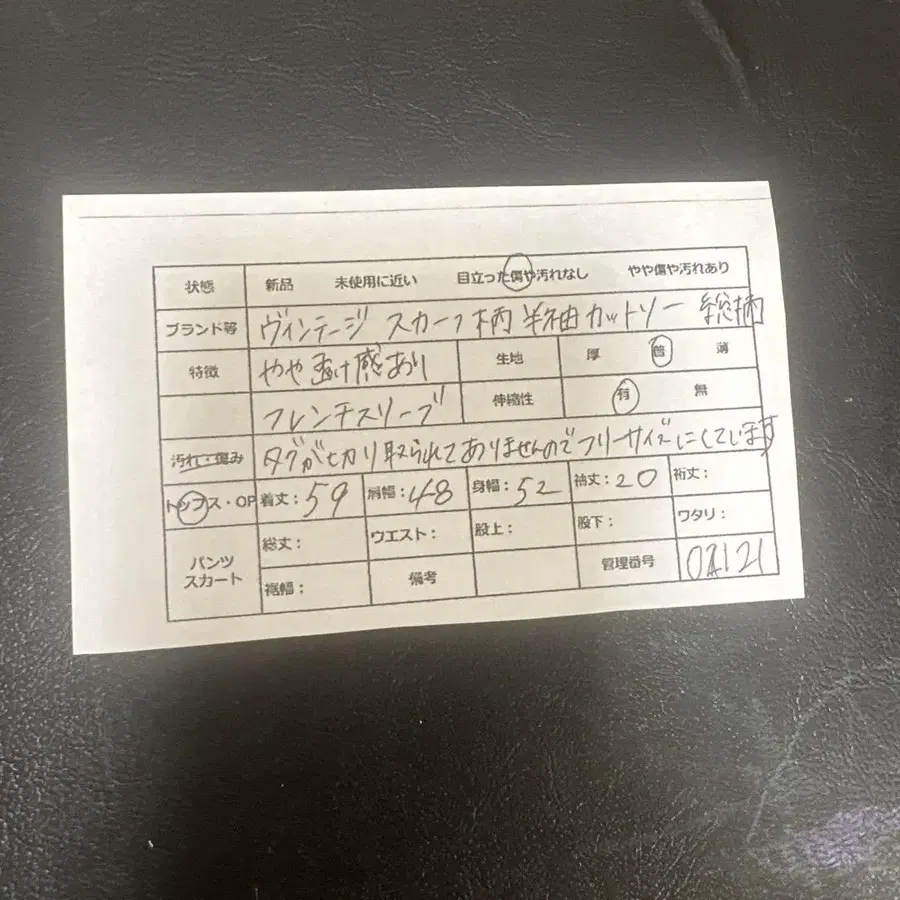 状態 新品 未使用に近い 目立った傷や汚れなし やや傷や汚れあり
ブランド等 ヴィンテージ スカーフ柄 半袖カットソー 総柄
特徴 やや透け感あり 生地 厚 普 薄
フレンチスリーブ 伸縮性 有 無
汚れ・傷み タグが切り取られてありませんのでフリーサイズにしています
トップス・OP 着丈：59 肩幅：48 身幅：52 袖丈：20 裄丈：
パンツ スカート 総丈： ウエスト： 股上： 股下： ワタリ：
裾幅： 備考 管理番号